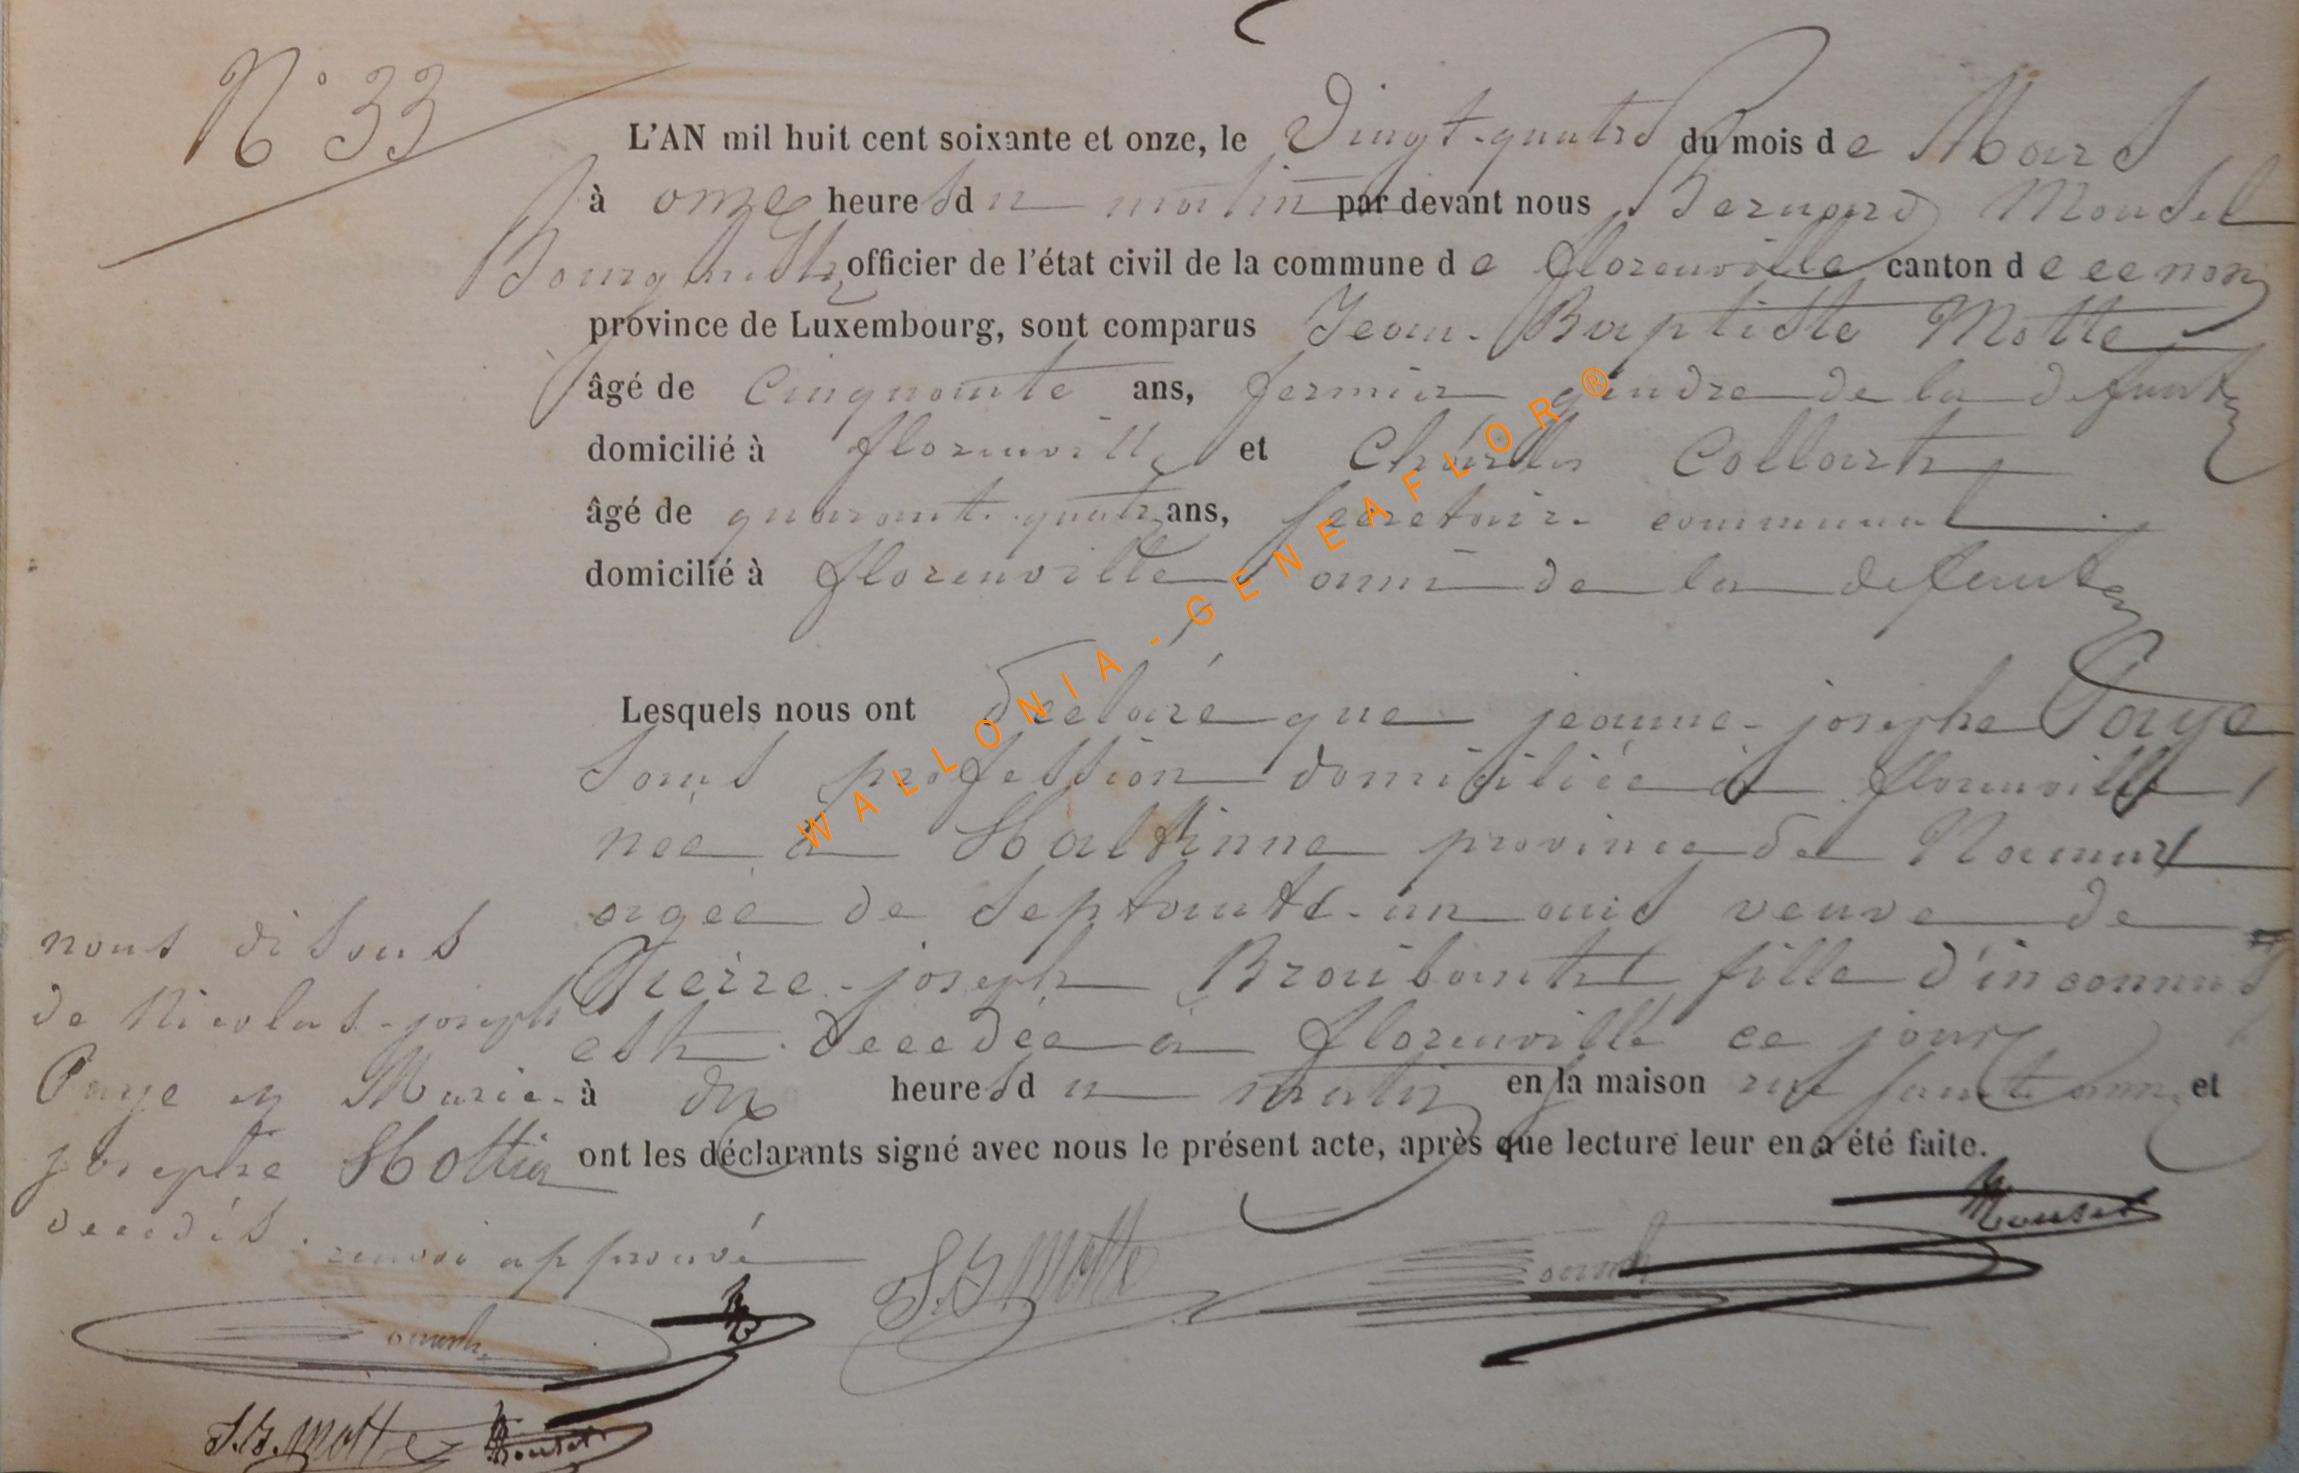 N° 33
L'AN mil huit cent soixante et onze, le Vingt-quatre du mois de Mars
à onze heures du matin par devant nous Bernard Mousel
Bourgmestre, officier de l'état civil de la commune de florenville canton de ce nom
province de Luxembourg, sont comparus Jean-Baptiste Motte
âgé de Cinquante ans, fermier gendre de la defunte
domicilié à florenville et Charles Collart
âgé de quarante-quatre ans, secretaire communal
domicilié à florenville ami de la defunte
Lesquels nous ont declaré que jeanne-josephe Paye
sans profession domiciliée à florenville
née à Haltinne province de Namur
agée de Septante-un ans veuve de
Pierre-joseph Braibant fille d'inconnus
est decedée à florenville ce jour
à dix heures du matin en la maison rue sainte anne et
ont les déclarants signé avec nous le présent acte, après que lecture leur en a été faite.
nous disons
de Nicolas-joseph
Paye et Marie-
josephe Hottia
decedés. renvoi approuvé
J.B. Motte
J.B. Motte
WALLONIA-GENEAFLOR®